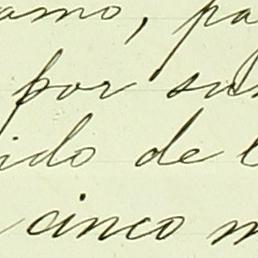 amo, pa
por su
ido de l
cinco m